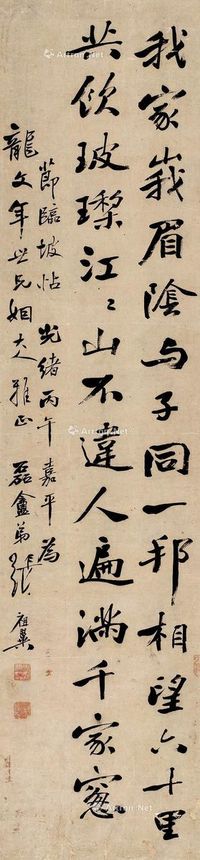 我家峨眉陰与子同一邦相望六十里
共飲玻瓈江江山不違人遍滿千家窻
節臨坡帖 光緒丙午嘉平為
龍文年世兄姻大人雅正 磊盦弟張祖翼